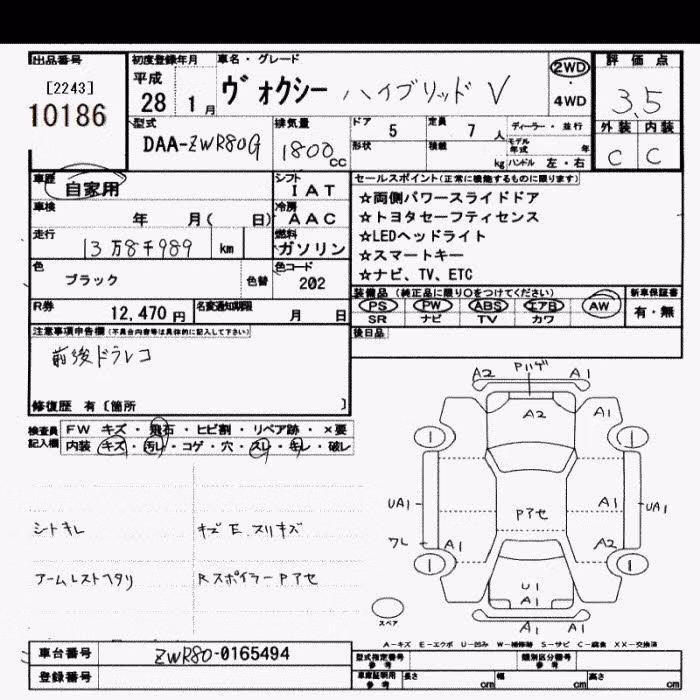 出品番号
[2243]
10186
初度登録年月
平成
28 1月
車名・グレード
ヴォクシー ハイブリッド V
2WD
・
4WD
評価点
3.5
外装 内装
C C
型式
DAA-ZWR80G
排気量
1800cc
ドア 5
定員 7人
ディーラー・並行
形状
積載 kg
モデル年式 年
ハンドル 左・右
車歴
自家用
シフト
IAT
車検
年 月( 日)
冷房
AAC
走行
13万8千989 km
燃料
ガソリン
色
ブラック
色替
色コード
202
R券
12,470円
名変通知期限
月 日
セールスポイント(正常に機能するものに限ります)
☆両側パワースライドドア
☆トヨタセーフティセンス
☆LEDヘッドライト
☆スマートキー
☆ナビ、TV、ETC
装備品(純正品に限り○をつけてください)
PS PW ABS エアB AW
SR ナビ TV カワ
新車保証書
有・無
後日品
注意事項申告欄(不具合内容等は具体的に記入して下さい)
前後ドラレコ
修復歴 有〔箇所 〕
検査員記入欄
FW キズ・飛石・ヒビ割・リペア跡・×要
内装 キズ・汚レ・コゲ・穴・スレ・キレ・破レ
シトキレ
キズ E スリキズ
アームレストヘタリ
RスポイラーPアセ
A2 Pハゲ A1
A2
A1
UA1
Pアセ
A1
UA1
ワレ
A1
A2
U1
A1
A1 A1
スペア
A-キズ E-エクボ U-凹み W-補修跡 S-サビ C-腐食 XX-交換済
車台番号
ZWR80-0165494
登録番号
型式指定番号
参考
類別区分番号
参考
車庫証明用
参考
長さ cm
幅 cm
高さ cm